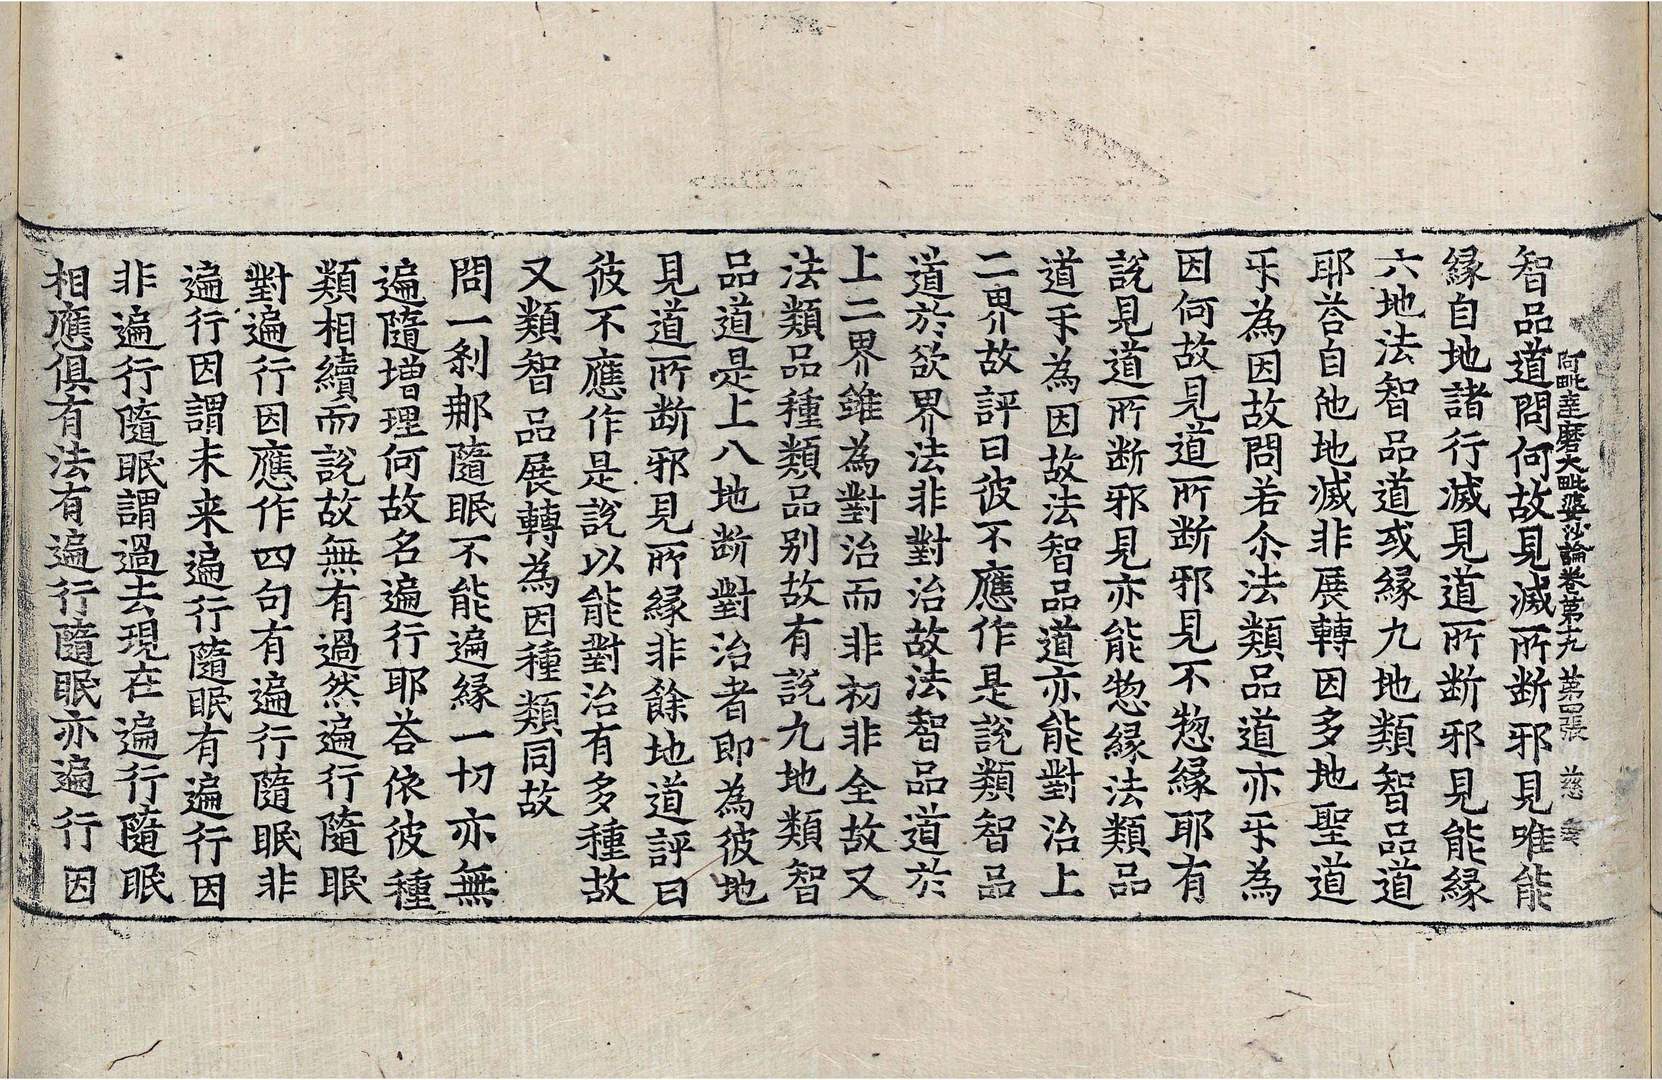 阿毗達磨大毗婆沙論卷第十九 第四張 慈
智品道問何故見滅所斷邪見唯能
緣自地諸行滅見道所斷邪見能緣
六地法智品道或緣九地類智品道
耶荅自他地滅非展轉因多地聖道
㸦為因故問若尒法類品道亦㸦為
因何故見道所斷邪見不惣緣耶有
說見道所斷邪見亦能惣緣法類品
道㸦為因故法智品道亦能對治上
二界故評曰彼不應作是說類智品
道於欲界法非對治故法智品道於
上二界雖為對治而非初非全故又
法類品種類品別故有說九地類智
品道是上八地斷對治者即為彼地
見道所斷邪見所緣非餘地道評曰
彼不應作是說以能對治有多種故
又類智品展轉為因種類同故
問一剎那隨眠不能遍緣一切亦無
遍隨增理何故名遍行耶荅依彼種
類相續而說故無有過然遍行隨眠
對遍行因應作四句有遍行隨眠非
遍行因謂未来遍行隨眠有遍行因
非遍行隨眠謂過去現在遍行隨眠
相應俱有法有遍行隨眠亦遍行因